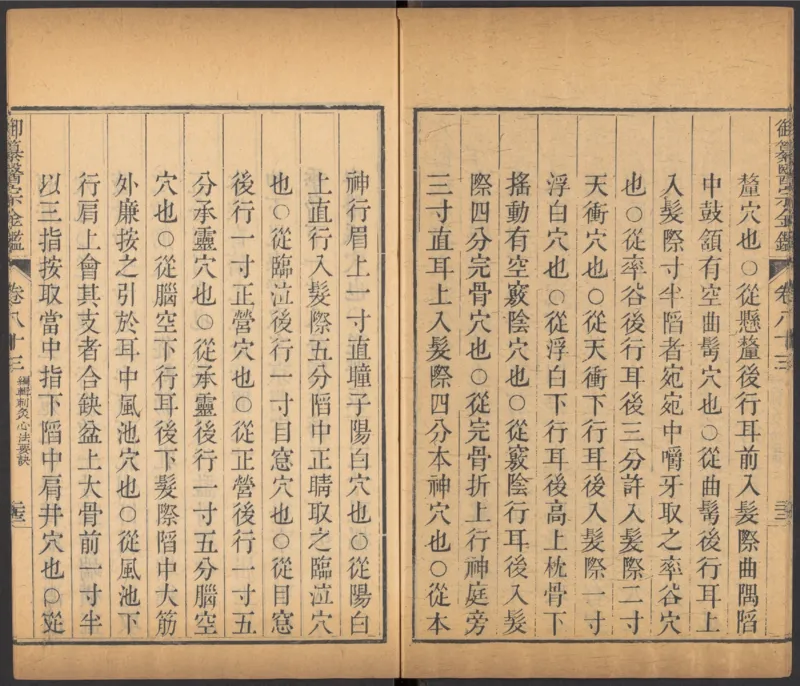 御纂醫宗金鑑
卷八十三
釐穴也○從懸釐後行耳前入髮際曲隅䧟
中鼓頷有空曲髩穴也○從曲髩後行耳上
入髮際寸半䧟者宛宛中嚼牙取之率谷穴
也○從率谷後行耳後三分許入髮際二寸
天衝穴也○從天衝下行耳後入髮際一寸
浮白穴也○從浮白下行耳後高上枕骨下
搖動有空竅陰穴也○從竅陰行耳後入髮
際四分完骨穴也○從完骨折上行神庭旁
三寸直耳上入髮際四分本神穴也○從本
神行眉上一寸直瞳子陽白穴也○從陽白
上直行入髮際五分䧟中正睛取之臨泣穴
也○從臨泣後行一寸目窻穴也○從目窻
後行一寸正營穴也○從正營後行一寸五
分承靈穴也○從承靈後行一寸五分腦空
穴也○從腦空下行耳後下髮際䧟中大筋
外廉按之引於耳中風池穴也○從風池下
行肩上會其支者合缺盆上大骨前一寸半
以三指按取當中指下䧟中肩井穴也○從
御纂醫宗金鑑
卷八十三
編輯刺灸心法要訣